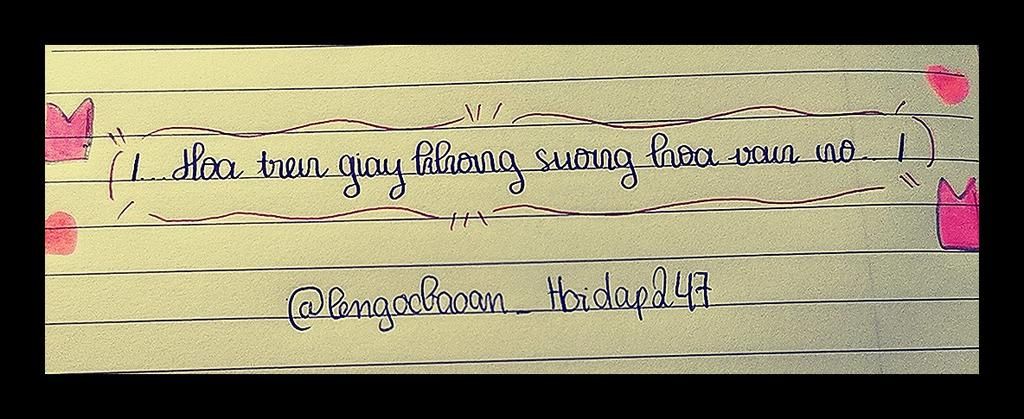 ( 1... Hoa tren giay khong suong hoa van no... 1 )
@lengocbaoan_Hoidap247